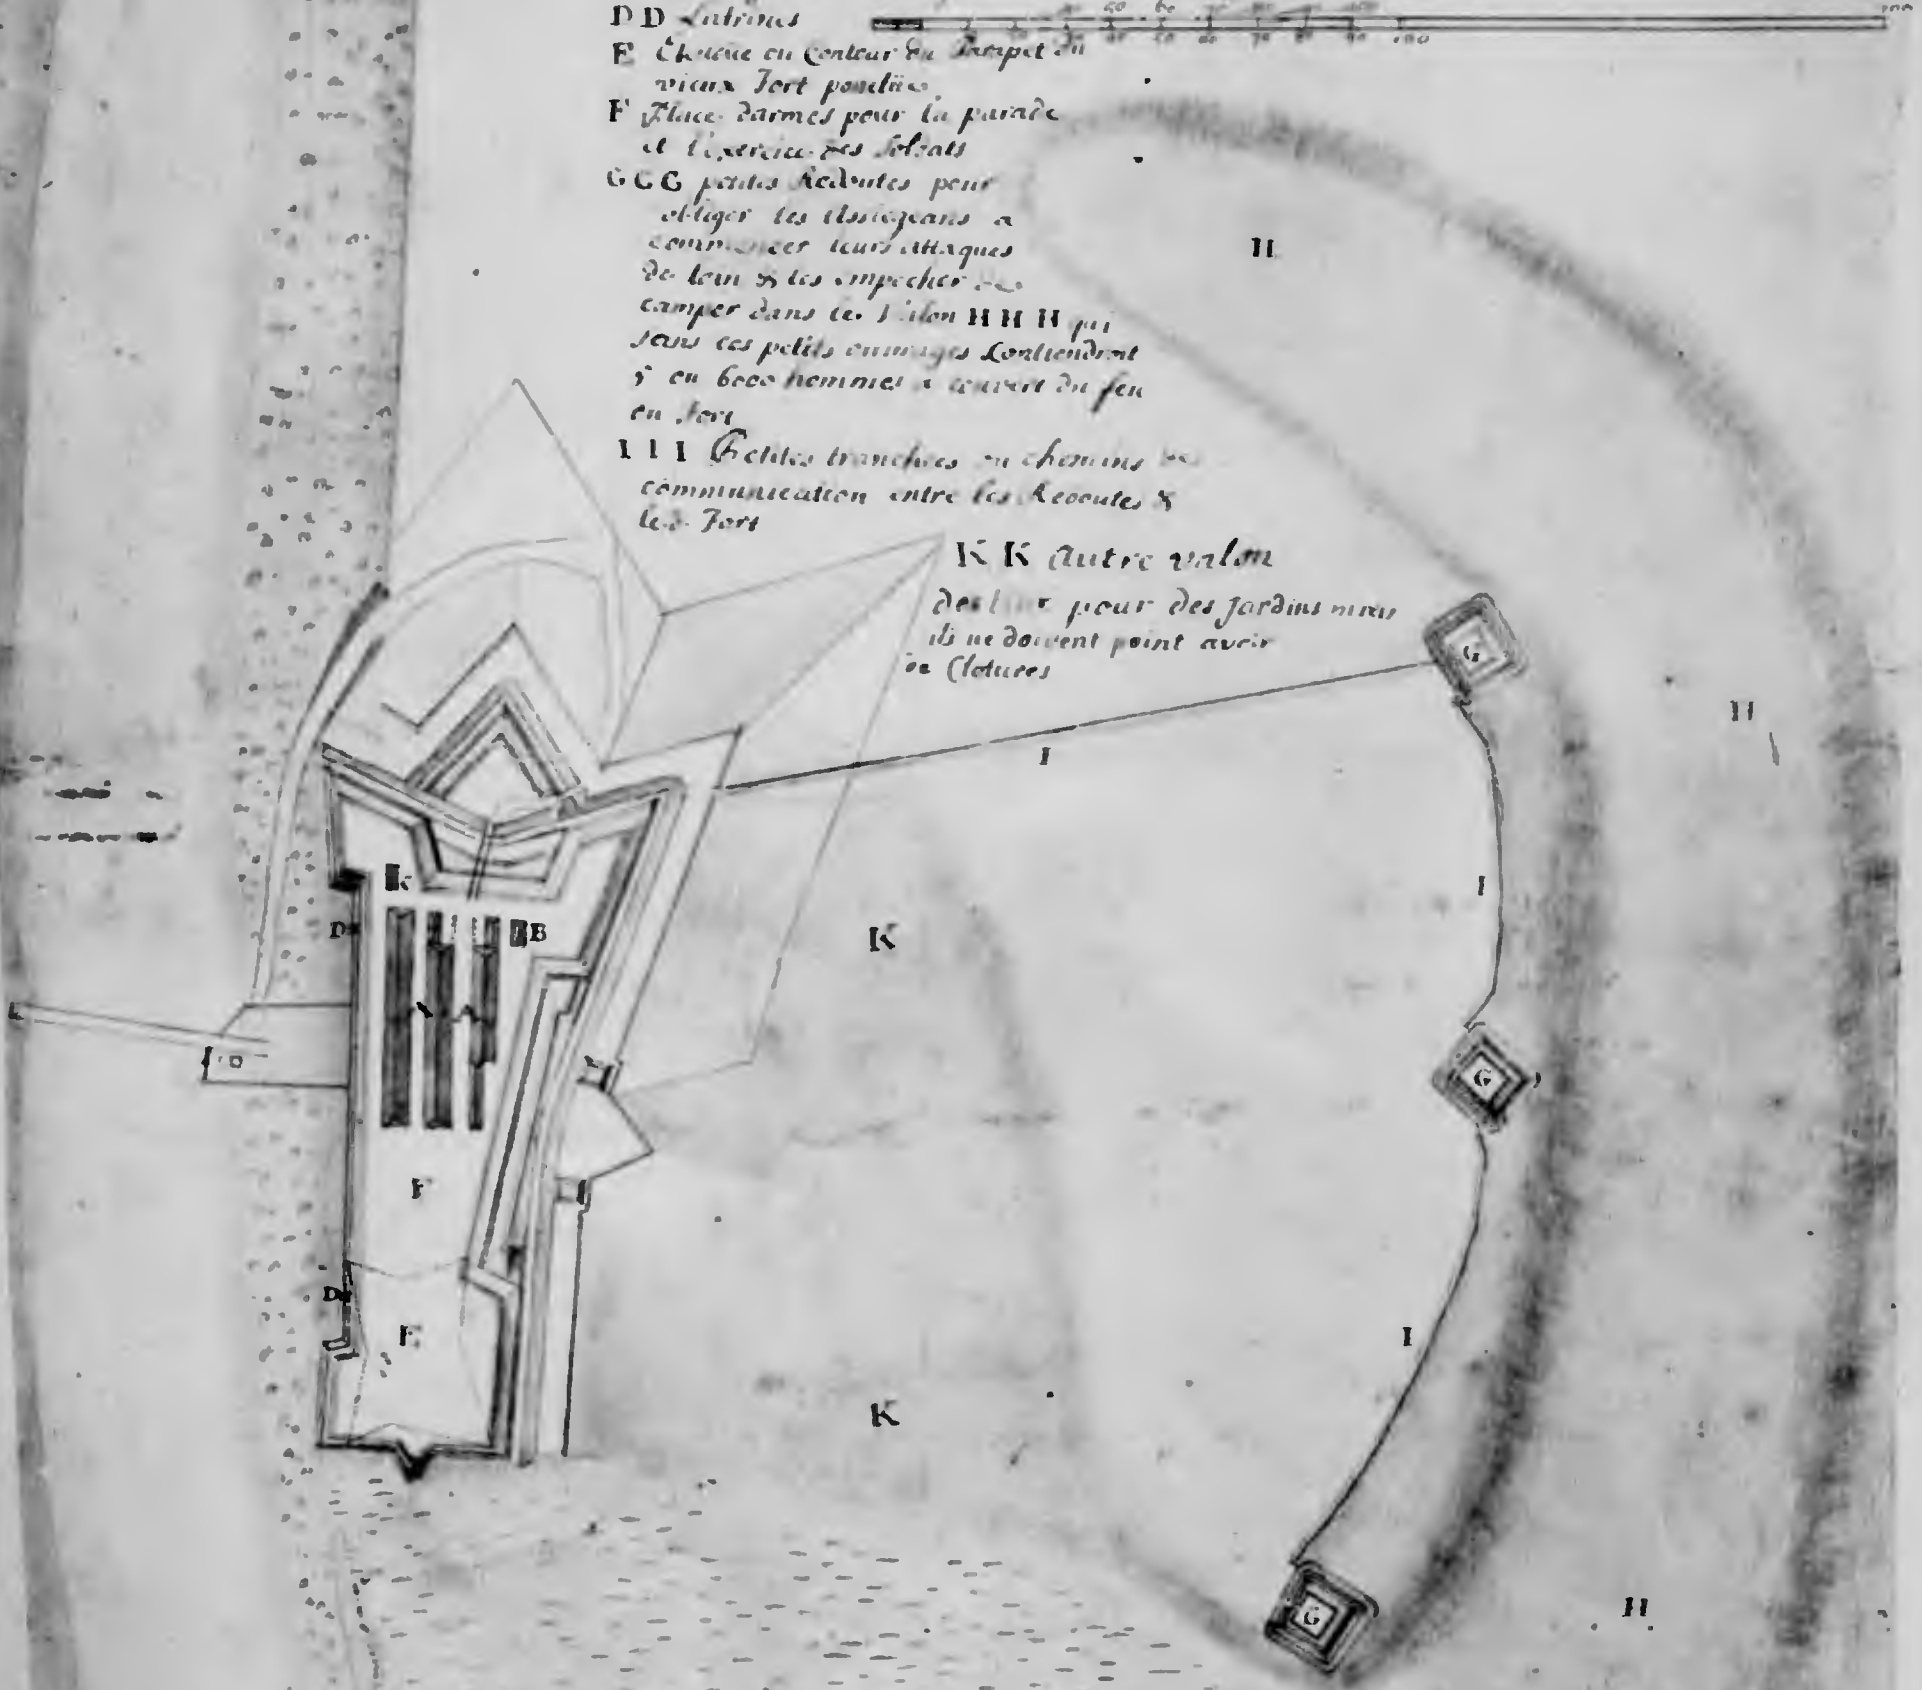 D D Latrines
E Ebauche ou Contour du Parapet du
vieux Fort ponctüée
F Place darmes pour la parade
et l'exercice des Soldats
G G G petites Redoutes pour
obliger les Assiegeans a
commencer leurs attaques
de loin & les empecher de
camper dans le Valon H H H qui
sans ces petits ouvrages Contiendroit
5 ou 6000 hommes a couvert du feu
du Fort
I I I Petites tranchées ou chemins de
communication entre les Redoutes &
led. Fort
K K Autre valon
destiné pour des Jardins mais
ils ne doivent point avoir
de Clotures
H
G
H
I
I
K
D
B
K
G
F
D
E
I
K
G
H